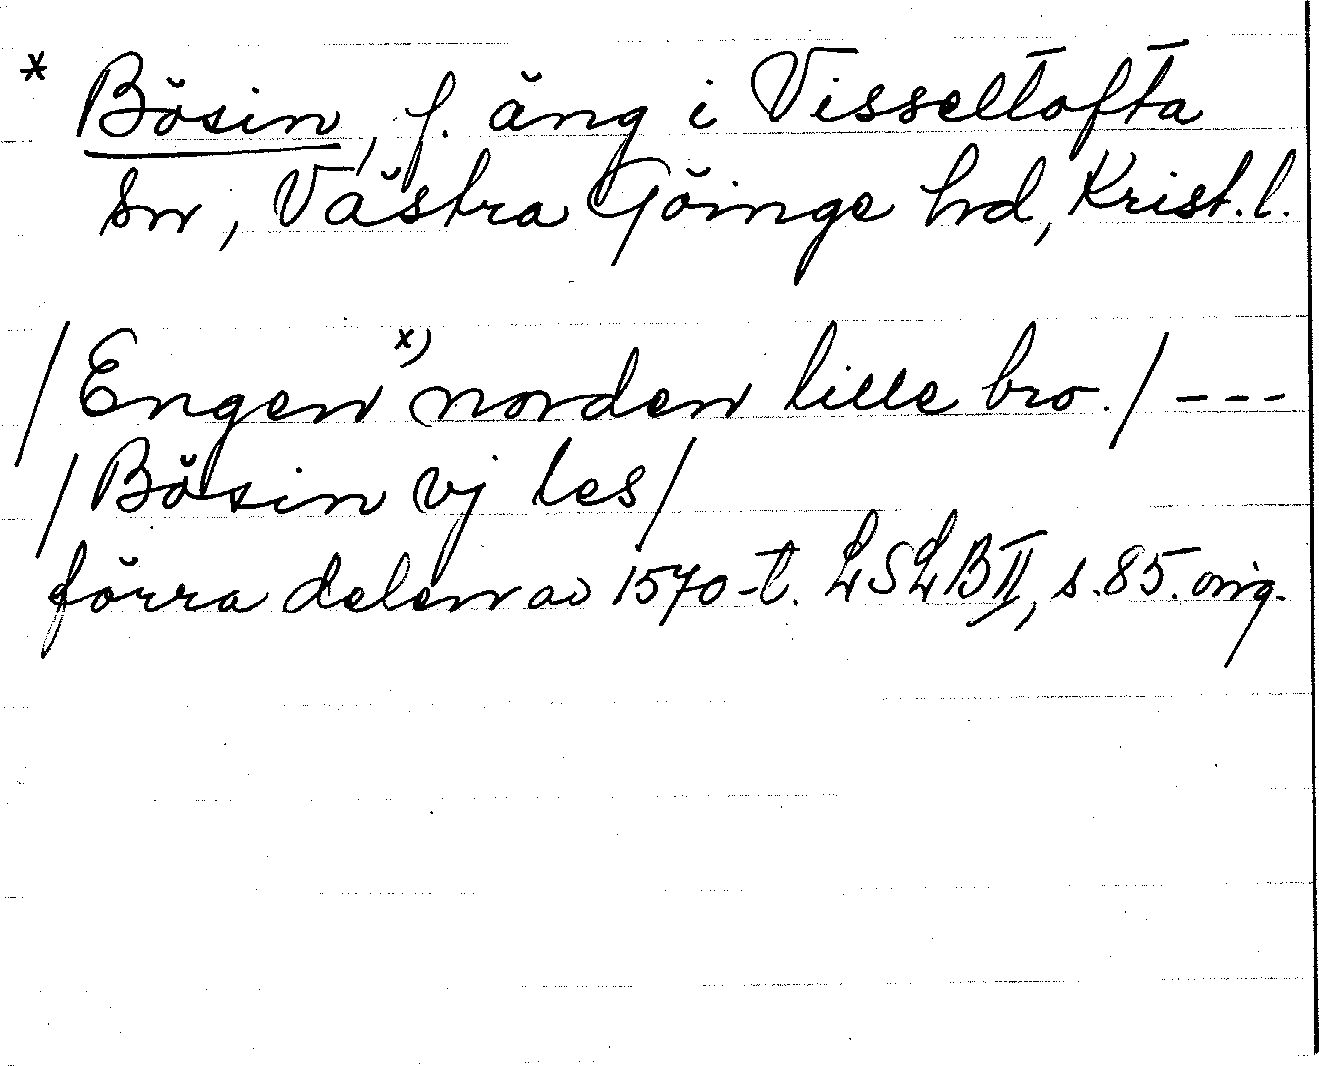 * Bösin, f. äng i Visseltofta
sn, Västra Göinge hd, Krist. l.
/Engen x) norden lille bro./ ---
/Bösin vj les/
förra delen av 1570-t. LSLB II, s. 85. orig.